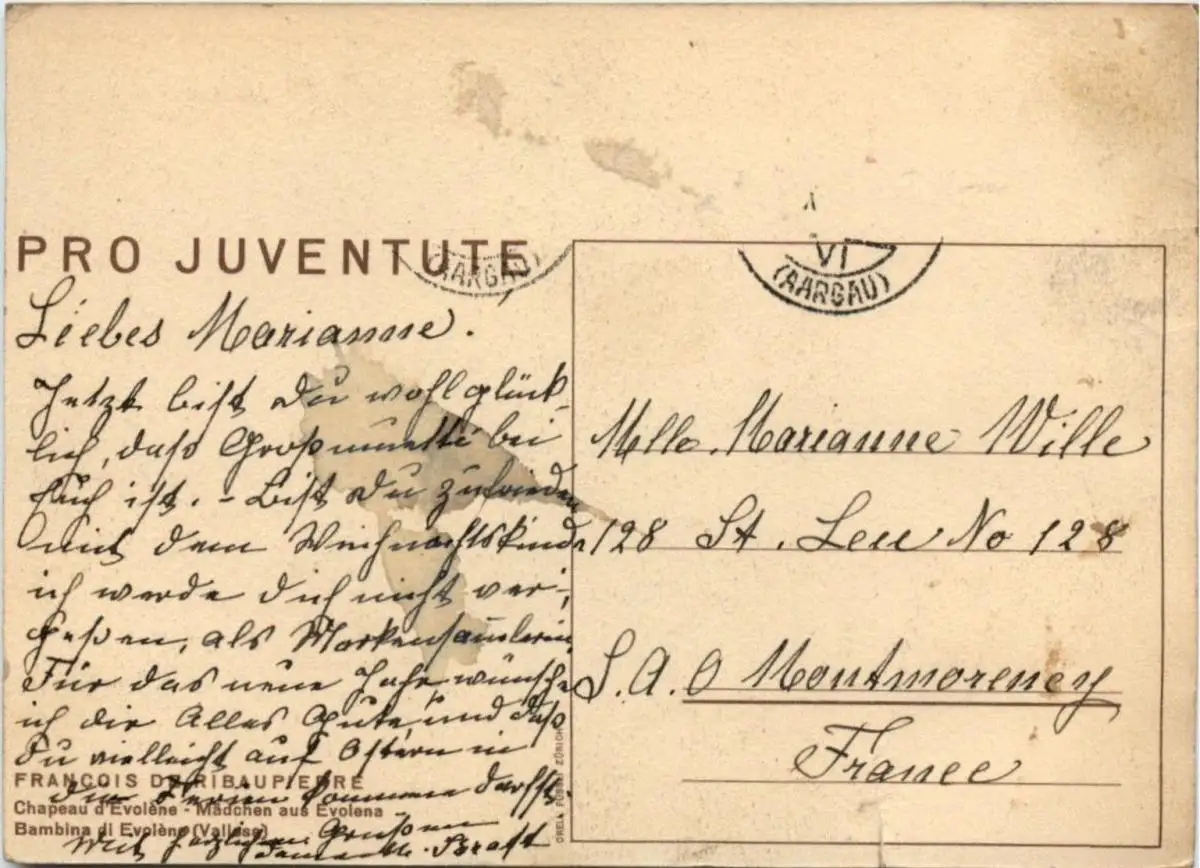 PRO JUVENTUTE
(AARGAU)
VI
(AARGAU)
Liebes Marianne.
Jetzt bist Du wohl glück-
lich, daß Großmutti bei
Euch ist. - Bist Du zufrieden
mit dem Weihnachtskindr
ich werde Dich nicht ver-,
geßen, als Markensammlerin,
Für das neue Jahr wünsche
ich die Alles Gute und daß
Du vielleicht auf Ostern in
die Ferien kommen darfst.
Mit herzlichen Grüßen
FRANÇOIS DE RIBAUPIERRE
Chapeau d'Evolène - Mädchen aus Evolena
Bambina di Evolène (Vallese)
ORELL FÜSSLI ZÜRICH
Mlle. Marianne Wille
128 St. Leu No 128
S.A.O Montmorency
France